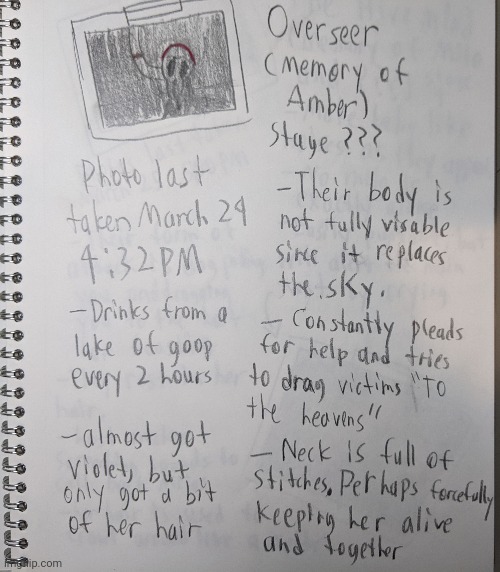 Overseer
(memory of
Amber)
Stage ???
Photo last
taken March 24
4:32 PM
-Drinks from a
lake of goop
every 2 hours
-almost got
violet, but
only got a bit
of her hair
-Their body is
not fully visable
since it replaces
the sky.
- Constantly pleads
for help and tries
to drag victims "To
the heavens"
- Neck is full of
stitches. Perhaps forcefully
keeping her alive
and together
imgflip.com